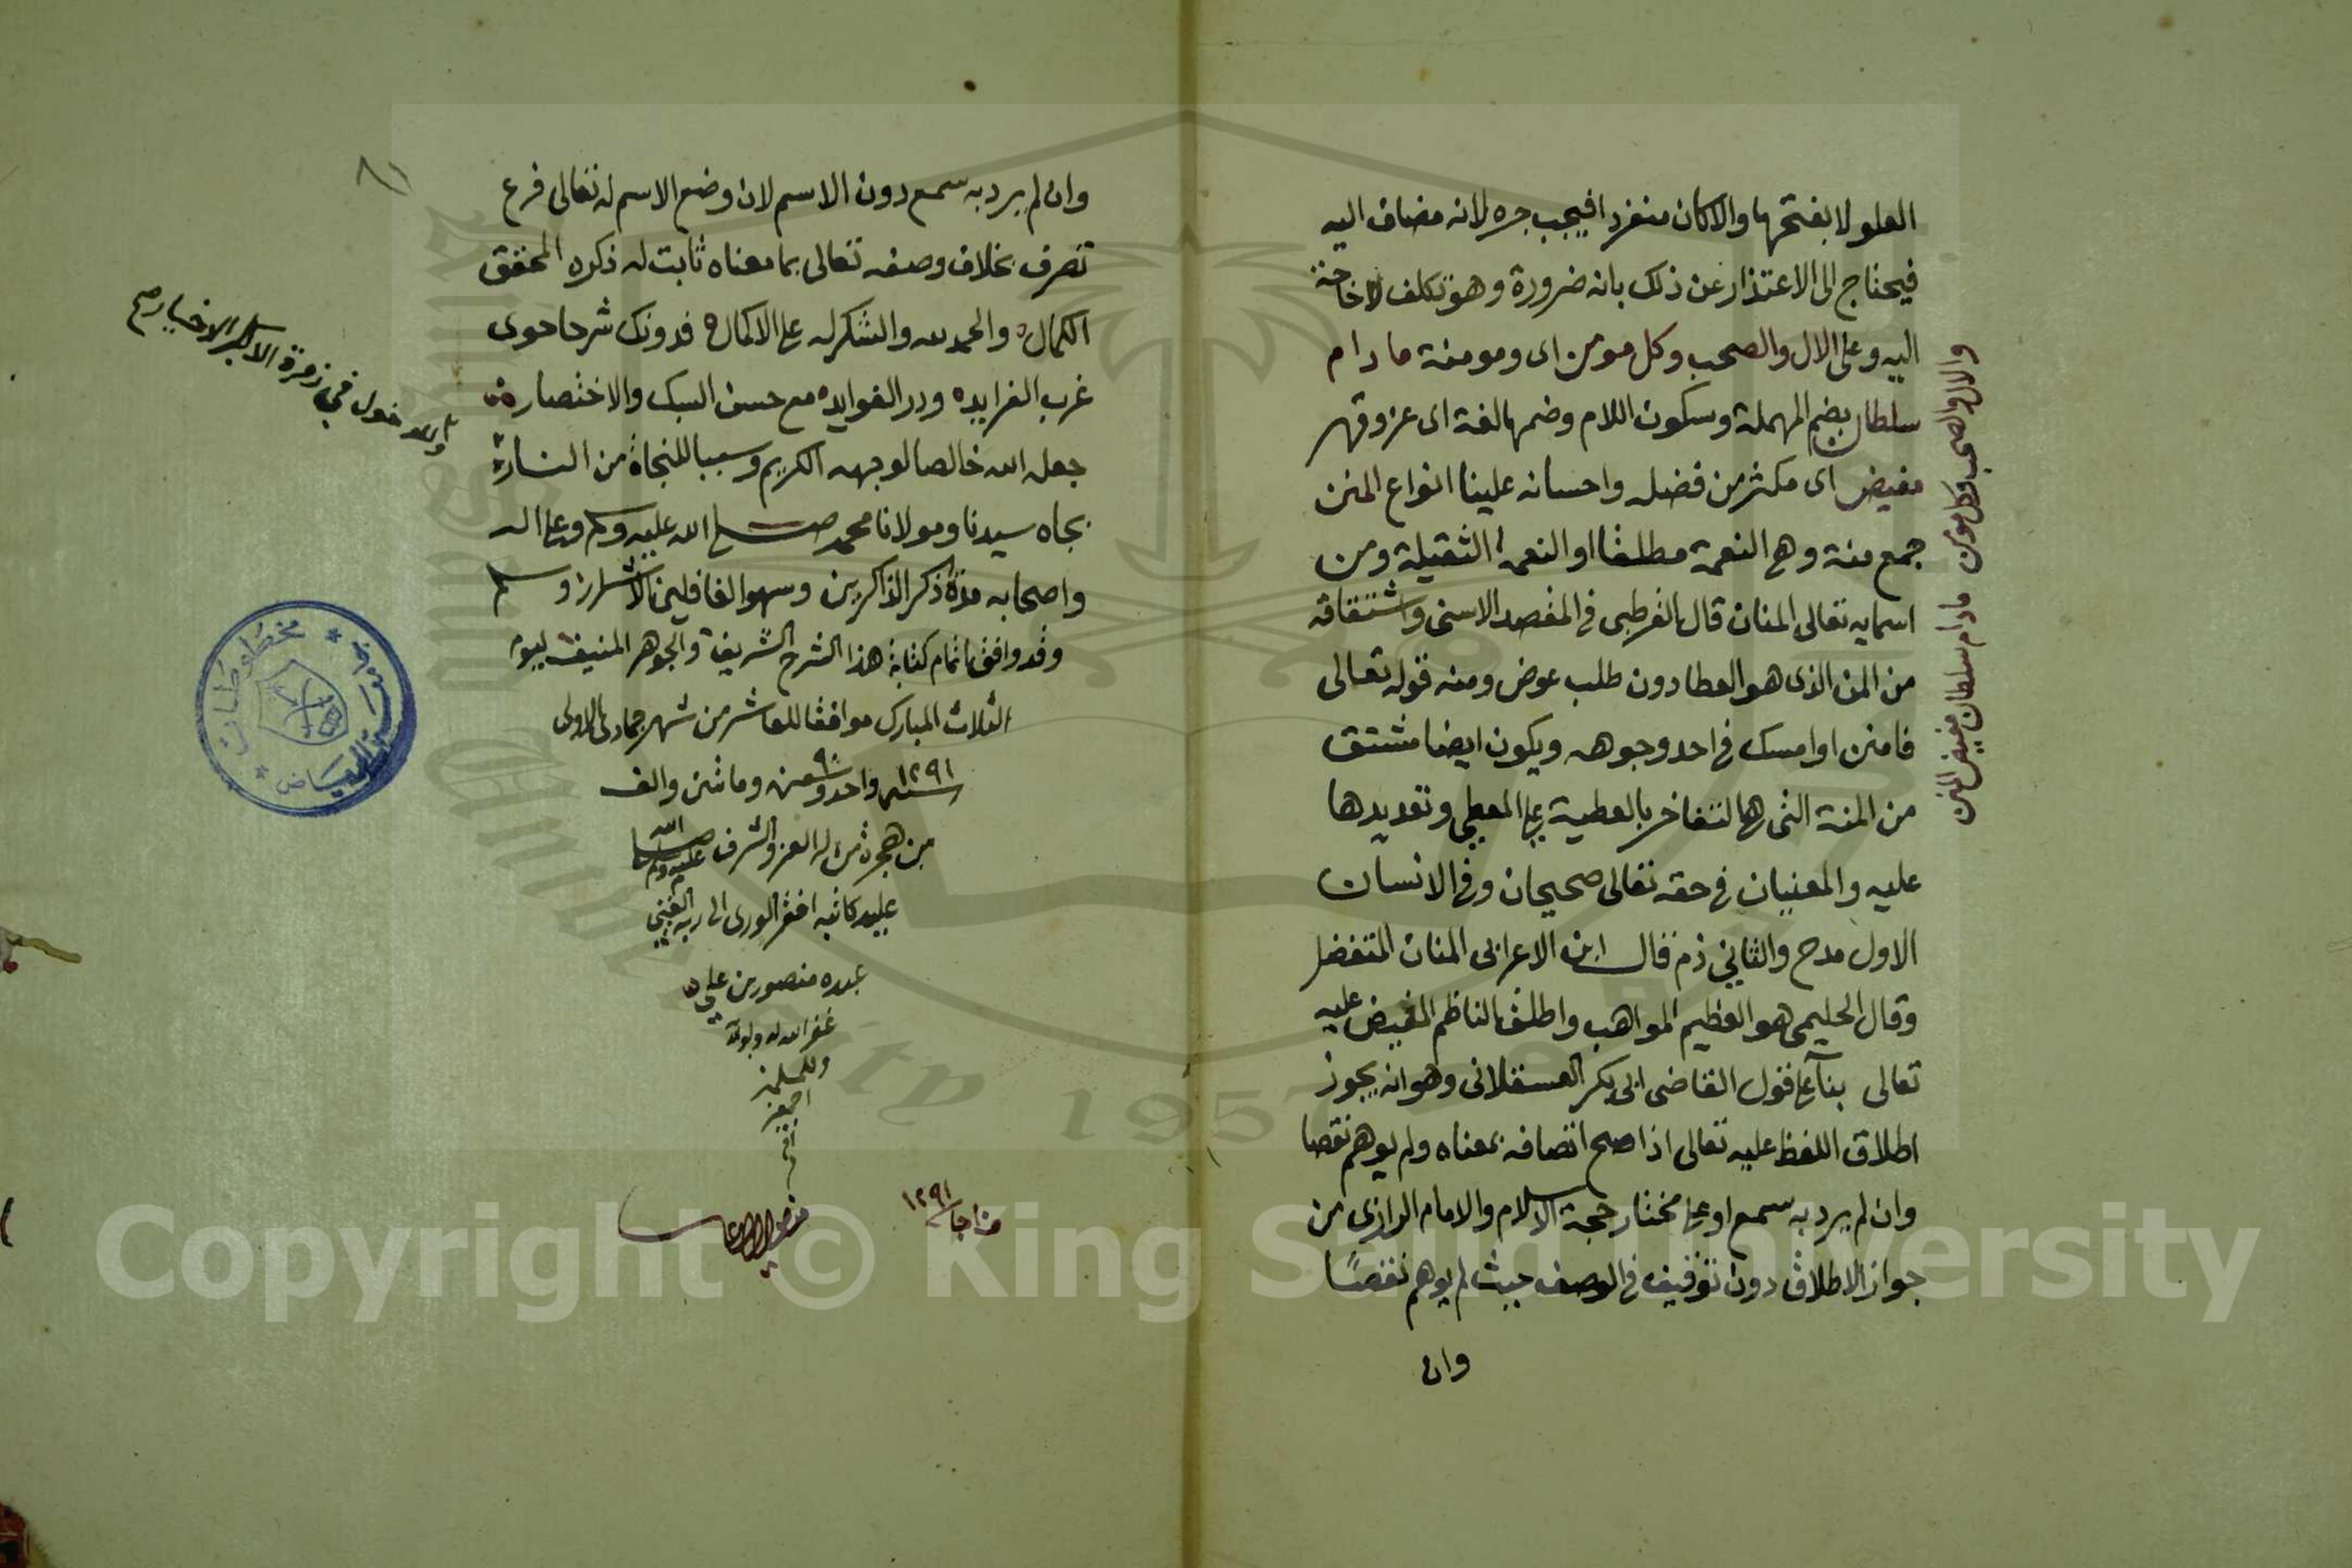 العلو لا بفتحها والا كان منفردا فيجب جره لانه مضاف اليه
فيحتاج الى الاعتذار عن ذلك بانه ضرورة وهو تكلف لا حاجة
اليه وعلى الال والصحب وكل مومن اى ومومنة ما دام
سلطان بضم المهملة وسكون اللام وضمها لغة اى عز وقهر
مفيض اى مكثر من فضله واحسانه علينا انواع المنن
جمع منة وهى النعمة مطلقا او النعمة الثقيلة ومن
اسمايه تعالى المنان قال القرطبى فى المقصد الاسنى واشتقاقه
من المن الذى هو العطا دون طلب عوض ومنه قوله تعالى
فامنن او امسك فى احد وجوهه ويكون ايضا مشتق
من المنة التى هى التفاخر بالعطية على المعطى وتعديدها
عليه والمعنيان فى حقه تعالى صحيحان وفى الانسان
الاول مدح والثانى ذم قال ابن الاعرابى المنان المتفضل
وقال الحليمى هو العظيم المواهب واطلق الناظم المفيض عليه
تعالى بناء على قول القاضى ابى بكر العسقلانى وهو انه يجوز
اطلاق اللفظ عليه تعالى اذا صح اتصافه بمعناه ولم يوهم نقصا
وان لم يرد به سمع او على مختار حجة الاسلام والامام الرازى من
جواز الاطلاق دون توقيف فى الوصف حيث لم يوهم نقصا
وان
والال والصحب وكل مومن ما دام سلطان مفيض المنن
٨١
وان لم يرد به سمع دون الاسم لان وضع الاسم له تعالى فرع
تصرف بخلاف وصفه تعالى بما معناه ثابت له ذكره المحقق
الكمال والحمد لله والشكر له على الاكمال فدونك شرحا حوى
غرب الفرايد ودرر الفوايد مع حسن السبك والاختصار
جعله الله خالصا لوجهه الكريم وسببا للنجاة من النار
بجاه سيدنا ومولانا محمد صلى الله عليه وسلم وعلى اله
واصحابه مدة ذكر الذاكرين وسهو الغافلين وسلم
وقد وافق اتمام كتابة هذا الشرح الشريف والجوهر المنيف ليوم
الثلاث المبارك موافقا للعاشر من شهر جمادى الاولى
١٢٩١ ٩٠
سنة واحد وتسعين ومائتين والف
من هجرة من له العز والشرف صلى الله عليه وسلم
على يد كاتبه افقر الورى الى ربه الغنى
عبده منصور بن على
غفر الله له ولوالديه
وللمسلمين
اجمعين
امين
١٢٩١
والدخول فى زمرة الاخيار صح
مخطوطات
الرياض
Copyright © King Saud University
1957